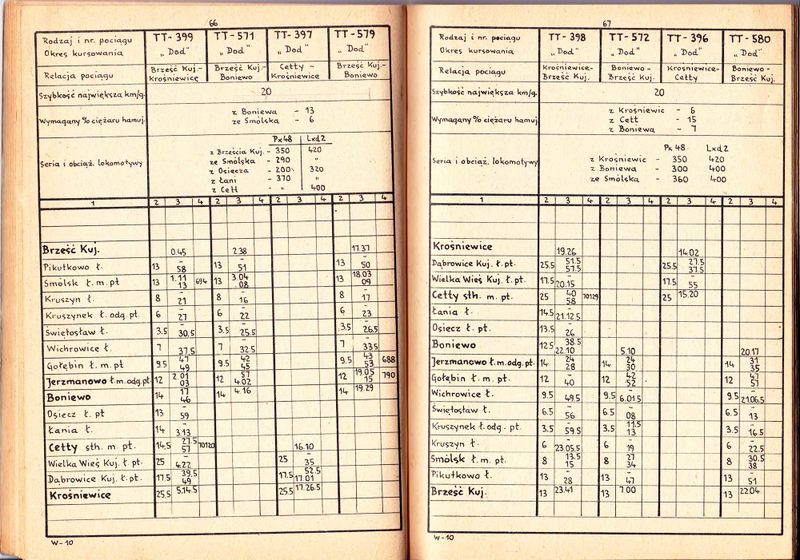 66
Rodzaj i nr. pociągu TT-399 TT-571 TT-397 TT-579
Okres kursowania „Dod" „Dod" „Dod" „Dod"
Relacja pociągu Brześć Kuj.- Krośniewice Brześć Kuj. Boniewo Cetty - Krośniewice Brześć Kuj.- Boniewo
Szybkość największa km/g. 20
Wymagany % ciężaru hamuj. z Boniewa - 13
ze Smólska - 6
Seria i obciąż. lokomotywy Px48 Lxd2
z Brześcia Kuj. - 350 420
ze Smólska - 290 "
z Osiecza - 200 320
z Łani - 370 "
z Cett - " 400
1 2 3 4 2 3 4 2 3 4 2 3 4
Brześć Kuj. 0.45 2.38 17.37
Pikutkowo ł. 13 - 58 13 - 51 13 - 50
Smólsk ł. m. pt 13 1.11 13 694 13 3.04 08 13 18.03 09
Kruszyn ł. 8 - 21 8 - 16 8 - 17
Kruszynek ł. odg. pt. 6 - 27 6 - 22 6 - 23
Świętosław ł. 3.5 - 30.5 3.5 - 25.5 3.5 - 26.5
Wichrowice ł. 7 - 37.5 7 - 32.5 7 - 33.5
Gołębin ł. m. pt 9.5 47 49 9.5 42 45 9.5 43 53 688
Jerzmanowo ł.m. odg. pt. 12 2.01 03 12 57 4.02 12 19.05 15 790
Boniewo 14 17 46 14 4.16 14 19.29
Osiecz ł. pt 13 - 59
Łania ł. 14 - 3.13
Cetty sth. m pt. 14.5 27.5 57 70120 16.10
Wielka Wieś Kuj. ł. pt. 25 - 4.22 25 - 35
Dąbrowice Kuj. ł. pt. 17.5 39.5 49 17.5 52.5 17.01
Krośniewice 25.5 5.14.5 25.5 17.26.5
W-10
67
Rodzaj i nr. pociągu TT-398 TT-572 TT-396 TT-580
Okres kursowania „Dod" „Dod" „Dod" „Dod"
Relacja pociągu Krośniewice- Brześć Kuj. Boniewo- Brześć Kuj. Krośniewice- Cetty Boniewo- Brześć Kuj.
Szybkość największa km/g. 20
Wymagany % ciężaru hamuj. z Krośniewic - 6
z Cett - 15
z Boniewa - 7
Seria i obciąż. lokomotywy Px 48 Lxd2
z Krośniewic - 350 420
z Boniewa - 300 400
ze Smólska - 360 400
1 2 3 4 2 3 4 2 3 4 2 3 4
Krośniewice 19.26 14.02
Dąbrowice Kuj. ł. pt. 25.5 51.5 57.5 25.5 27.5 37.5
Wielka Wieś Kuj. ł. pt. 17.5 - 20.15 17.5 - 55
Cetty sth. m. pt. 25 40 58 70129 25 15.20
Łania ł. 14.5 - 21.12.5
Osiecz ł. pt. 13.5 - 26
Boniewo 12.5 38.5 22.10 5.10 20.17
Jerzmanowo ł.m. odg. pt. 14 24 28 14 24 30 14 31 35
Gołębin ł. m. pt. 12 - 40 12 42 52 12 47 57
Wichrowice ł. 9.5 - 49.5 9.5 - 6.01.5 9.5 - 21.06.5
Świętosław ł. 6.5 - 56 6.5 - 08 6.5 - 13
Kruszynek ł. odg. pt 3.5 - 59.5 3.5 11.5 13 3.5 - 16.5
Kruszyn ł. 6 - 23.05.5 6 - 19 6 - 22.5
Smólsk ł. m. pt. 8 13.5 15 8 27 34 8 30.5 38
Pikutkowo ł. 13 - 28 13 - 47 13 - 51
Brześć Kuj. 13 23.41 13 7.00 13 22.04
W-10